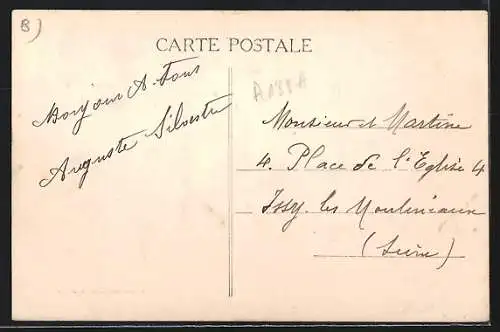 B)
CARTE POSTALE
Bonjour A tous
Auguste Silvestre
Monsieur et Martine
4. Place de l'Eglise 4
Issy. les Moulineaux
(Seine)